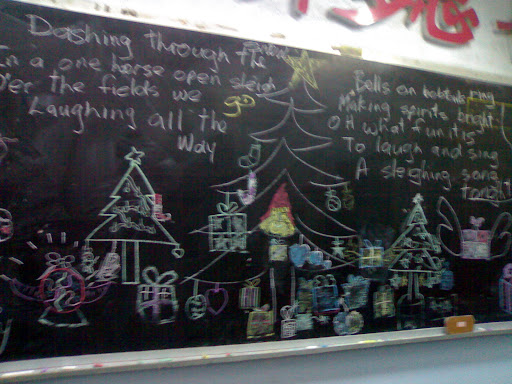 Dashing through the
In a one horse open sleigh
O'er the fields we go
Laughing all the
Way
Bells on bobtails ring
Making spirits bright
OH what fun it is
To laugh and sing
A sleighing song
tonight